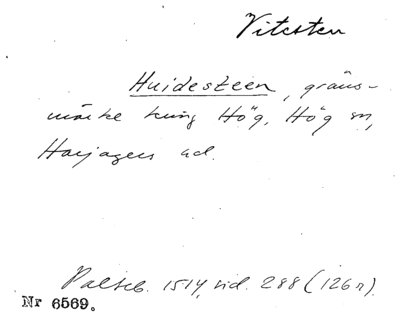 Vitesten
Huidesteen, gräns-
märke kring Hög, Hög sn,
Harjagers hd.
Paltsb. 1514, sid. 288 (126r).
Nr 6569.